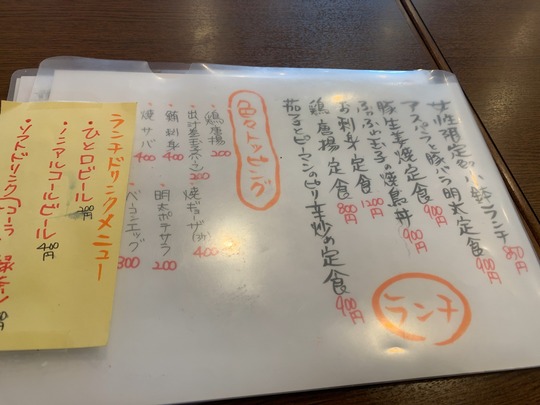 ランチ
女性限定 小鉢ランチ 850円
アスパラと豚バラ明太定食 900円
豚生姜焼定食 900円
ふわふわ玉子の焼鳥丼 900円
お刺身定食 1200円
鶏唐揚定食 800円
茄子とピーマンのピリ辛炒め定食 900円
色々トッピング
・鶏唐揚 200
・出汁巻玉子 200
・鮪刺身 400
・焼サバ 400
・焼ギョーザ 400
・明太ポテサラ 200
・ベーコンエッグ 300
ランチドリンクメニュー
・ひと口ビール 200円
・ノンアルコールビール 400円
・ソフトドリンク